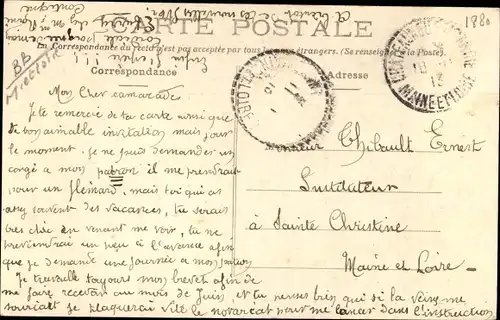 CARTE POSTALE
La Correspondance au recto n'est pas acceptée par tous les pays étrangers. (Se renseigner à la Poste)
Correspondance
Adresse
1880
BB
Mon Cher camarade
Je te remercie de ta carte ainsi que
de ton aimable invitation mais pour
le moment je ne puis demander un
congé a mon patron il me prendrait
pour un flémard, mais toi qui as
assez souvent des vacances, tu serais
bien chic en venant me voir, tu me
préviendrais un peu à l'avance afin
que je demande une journée a mon patron
Je travaille toujours mon brevet afin de
me faire recevoir au mois de Juin, et tu penses bien qui si la veine me
souriait je plaquerais vite le notariat pour me lancer dans l'instruction
Monsieur Thibault Ernest
Instituteur
à Sainte Christine
Maine et Loire
MAINE ET LOIRE